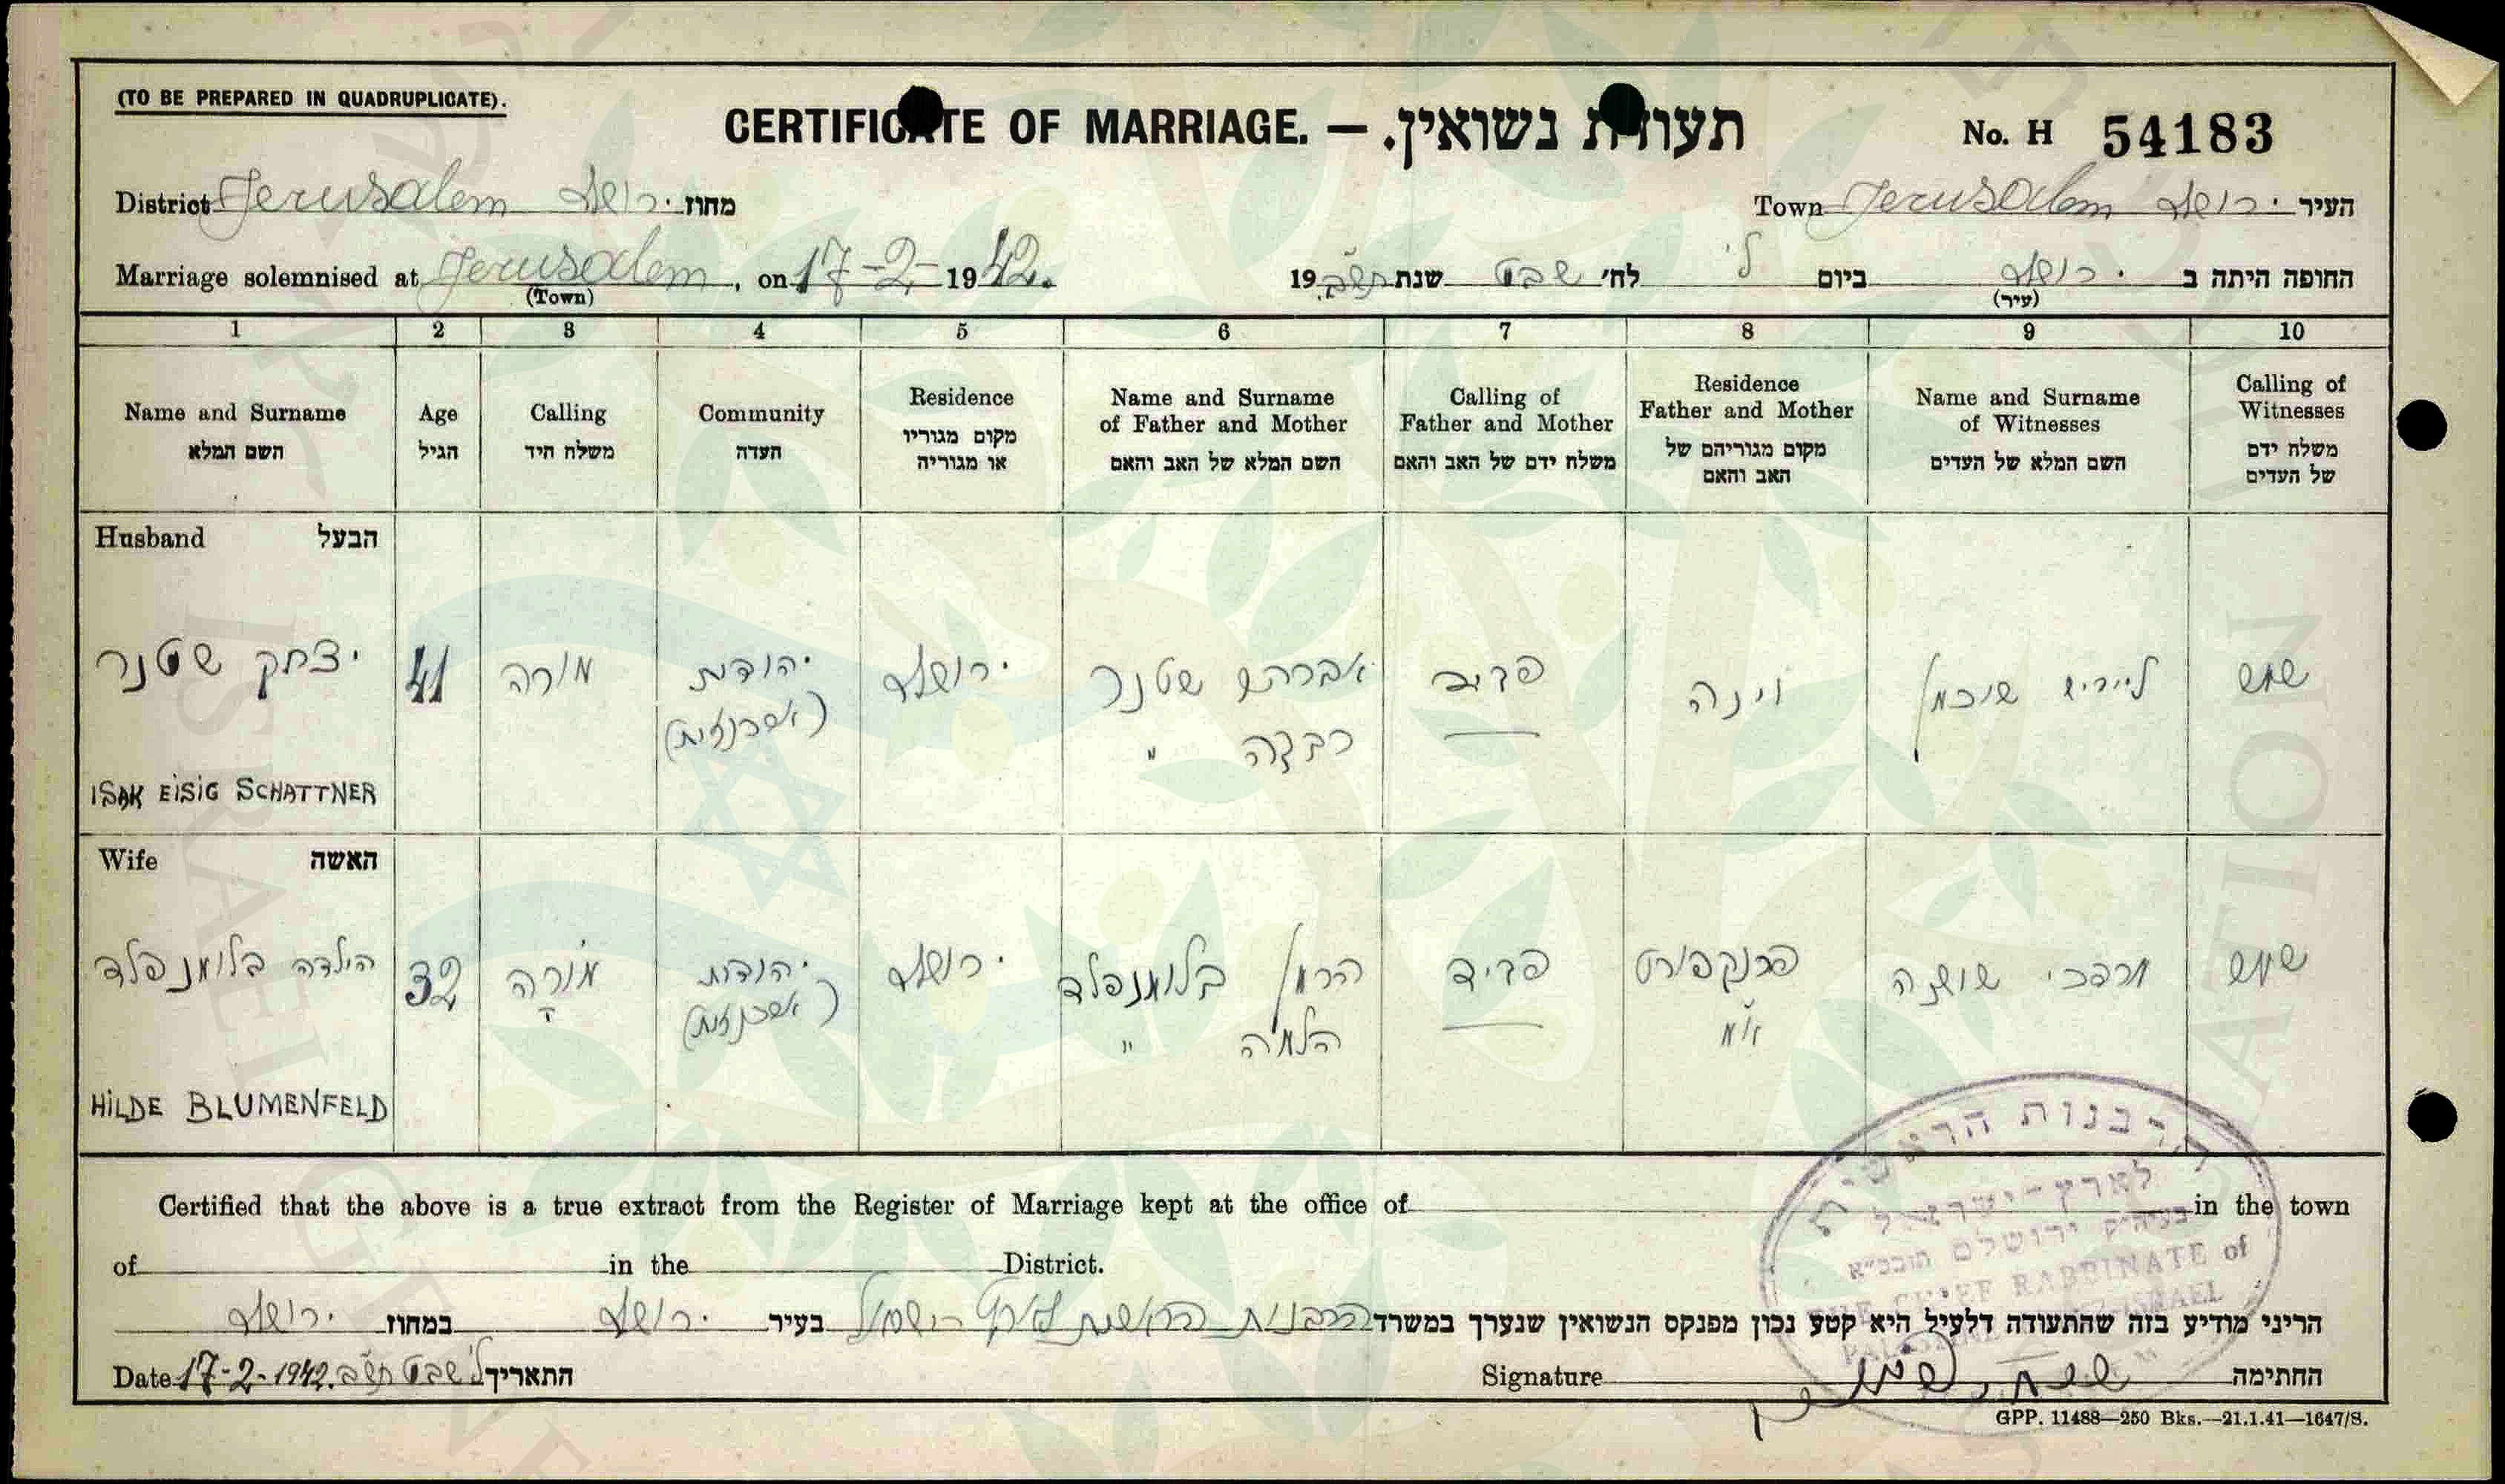 (TO BE PREPARED IN QUADRUPLICATE).
CERTIFICATE OF MARRIAGE. — תעודת נשואין.
No. H 54183
District Jerusalem ירושלם מחוז
Town Jerusalem ירושלם העיר
Marriage solemnised at Jerusalem, on 17-2-1942.
(Town)
החופה היתה ב ירושלם ביום ל' לח' שבט שנת תש"ב 19
(עיר)
1 2 3 4 5 6 7 8 9 10
Name and Surname
השם המלא
Age
הגיל
Calling
משלח היד
Community
העדה
Residence
מקום מגוריו
או מגוריה
Name and Surname
of Father and Mother
השם המלא של האב והאם
Calling of
Father and Mother
משלח ידם של האב והאם
Residence
Father and Mother
מקום מגוריהם של
האב והאם
Name and Surname
of Witnesses
השם המלא של העדים
Calling of
Witnesses
משלח ידם
של העדים
Husband הבעל
יצחק שטנר
ISAK EISIG SCHATTNER
41
מורה
יהודית
(אשכנזית)
ירושלם
אברהם שטנר
"
וינה
שמש
Wife האשה
הילדה בלומנפלד
HILDE BLUMENFELD
32
מורה
יהודית
(אשכנזית)
ירושלם
הרמן בלומנפלד
"
פרנקפורט
א"מ
מרדכי שושנה
שמש
Certified that the above is a true extract from the Register of Marriage kept at the office of in the town
of in the District.
הריני מודיע בזה שהתעודה דלעיל היא קטע נכון מפנקס הנשואין שנערך במשרד הרבנות הראשית לארץ ישראל בעיר ירושלם במחוז ירושלם
Date 17-2-1942. ל' שבט תש"ב התאריך
Signature החתימה
הרבנות הראשית
לארץ-ישראל
בעיה"ק ירושלם תובב"א
THE CHIEF RABBINATE of
GPP. 11488—250 Bks.—21.1.41—1647/S.
ISRAEL GENE
ATION